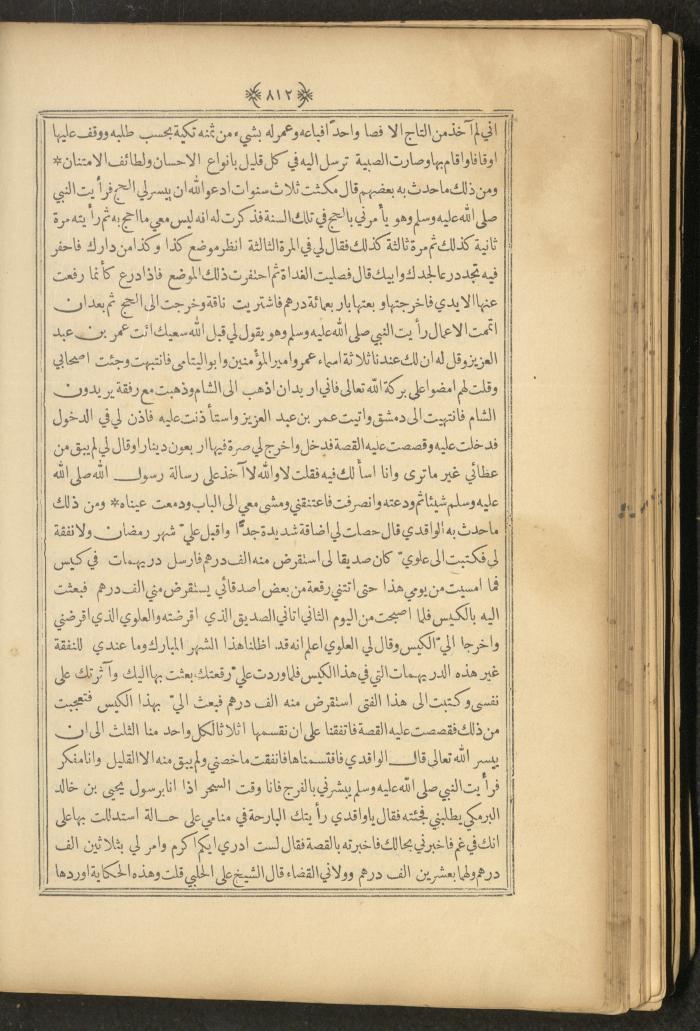 ﴿٨١٢﴾
اني لم آخذ من التاج الا فصا واحدًا فباعه وعمر له بشيء من ثمنه تكية بحسب طلبه ووقف عليها
اوقافا واقام بها وصارت الصبية ترسل اليه في كل قليل بانواع الاحسان ولطائف الامتنان *
ومن ذلك ما حدث به بعضهم قال مكثت ثلاث سنوات ادعو الله ان ييسر لي الحج فرأيت النبي
صلى الله عليه وسلم وهو يأمرني بالحج في تلك السنة فذكرت له انه ليس معي ما احج به ثم رأيته مرة
ثانية كذلك ثم مرة ثالثة كذلك فقال لي في المرة الثالثة انظر موضع كذا وكذا من دارك فاحفر
فيه تجد درعا لجدك وابيك قال فصليت الغداة ثم احتفرت ذلك الموضع فاذا درع كأنما رفعت
عنها الايدي فاخرجتها وبعتها باربعمائة درهم فاشتريت ناقة وخرجت الى الحج ثم بعد ان
اتممت الاعمال رأيت النبي صلى الله عليه وسلم وهو يقول لي قبل الله سعيك ائت عمر بن عبد
العزيز وقل له ان لك عندنا ثلاثة اسماء عمر وامير المؤمنين وابو اليتامى فانتبهت وجئت اصحابي
وقلت لهم امضوا على بركة الله تعالى فاني اريد ان اذهب الى الشام وذهبت مع رفقة يريدون
الشام فانتهيت الى دمشق واتيت عمر بن عبد العزيز واستأذنت عليه فاذن لي في الدخول
فدخلت عليه وقصصت عليه القصة فدخل واخرج لي صرة فيها اربعون دينارا وقال لي لم يبق من
عطائي غير ما ترى وانا اسألك فيه فقلت لا والله لا آخذ على رسالة رسول الله صلى الله
عليه وسلم شيئا ثم ودعته وانصرفت فاعتنقني ومشى معي الى الباب ودمعت عيناه * ومن ذلك
ما حدث به الواقدي قال حصلت لي اضاقة شديدة جدًّا واقبل عليّ شهر رمضان ولا نفقة
لي فكتبت الى علويّ كان صديقا لي استقرض منه الف درهم فارسل دريهمات في كيس
فما امسيت من يومي هذا حتى اتتني رقعة من بعض اصدقائي يستقرض مني الف درهم فبعثت
اليه بالكيس فلما اصبحت من اليوم الثاني اتاني الصديق الذي اقرضته والعلوي الذي اقرضني
واخرجا اليّ الكيس وقال لي العلوي اعلم انه قد اظلنا هذا الشهر المبارك وما عندي للنفقة
غير هذه الدريهمات التي في هذا الكيس فلما وردت عليّ رقعتك بعثت بها اليك وآثرتك على
نفسي وكتبت الى هذا الفتى استقرض منه الف درهم فبعث اليّ بهذا الكيس فتعجبت
من ذلك فقصصت عليه القصة فاتفقنا على ان نقسمها اثلاثا لكل واحد منا الثلث الى ان
ييسر الله تعالى قال الواقدي فاقتسمناها فانفقت ما خصني ولم يبق منه الا القليل وانا مفكر
فرأيت النبي صلى الله عليه وسلم يبشرني بالفرج فانا وقت السحر اذا انا برسول يحيى بن خالد
البرمكي يطلبني فجئته فقال يا واقدي رأيتك البارحة في منامي على حالة استدللت بها على
انك في غم فاخبرني بحالك فاخبرته بالقصة فقال لست ادري ايكم اكرم وامر لي بثلاثين الف
درهم ولهما بعشرين الف درهم وولاني القضاء قال الشيخ علي الحلبي قلت وهذه الحكاية اوردها